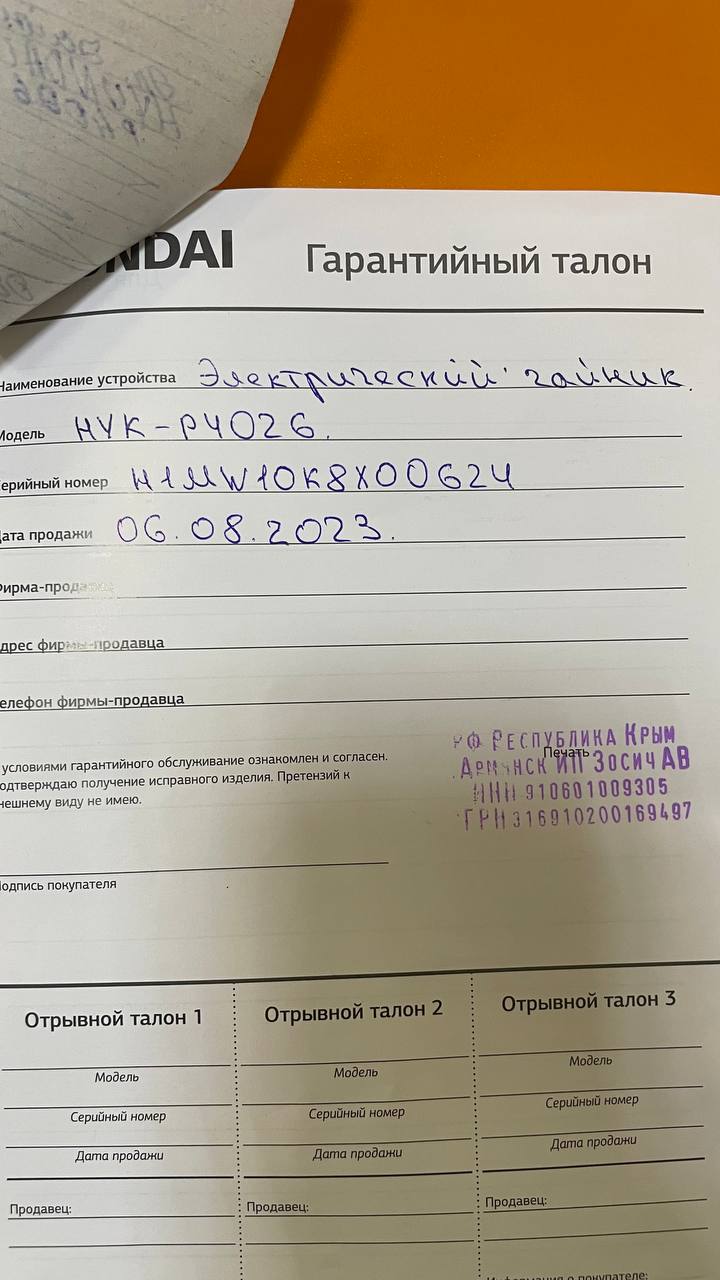 NDAI
Гарантийный талон
Наименование устройства Электрический чайник.
Модель HYK-P4026.
Серийный номер H1MW10K8X00624
Дата продажи 06.08.2023.
Фирма-прода
дрес фирмы-продавца
елефон фирмы-продавца
условиями гарантийного обслуживание ознакомлен и согласен.
одтверждаю получение исправного изделия. Претензий к
нешнему виду не имею.
Печать
РФ Республика Крым
Армянск ИП Зосич АВ
ИНН 910601009305
ГРН 316910200169497
Подпись покупателя
Отрывной талон 1
Модель
Серийный номер
Дата продажи
Продавец:
Отрывной талон 2
Модель
Серийный номер
Дата продажи
Продавец:
Отрывной талон 3
Модель
Серийный номер
Дата продажи
Продавец: